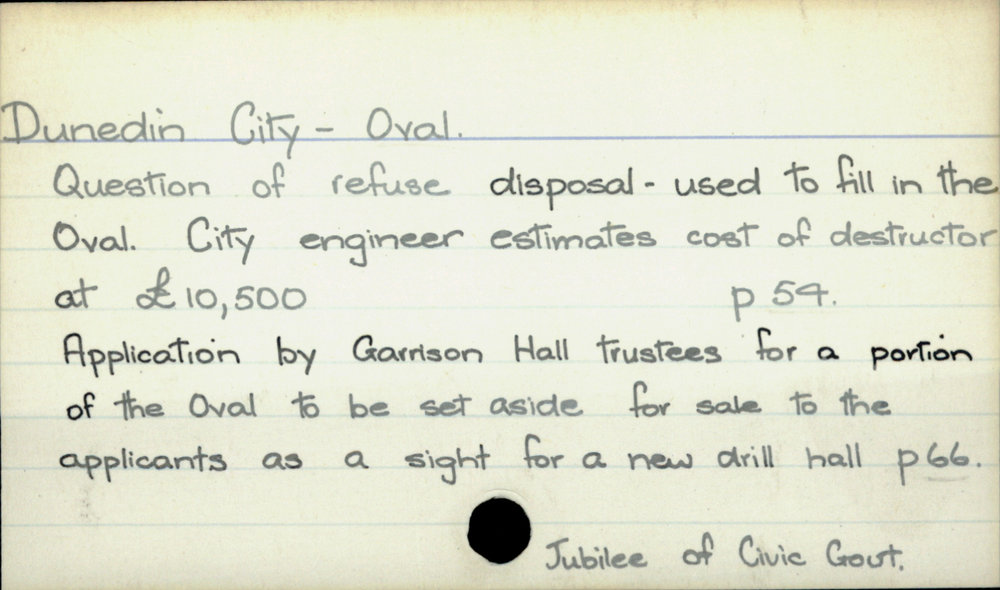 Dunedin City - Oval.
Question of refuse disposal - used to fill in the
Oval. City engineer estimates cost of destructor
at £10,500 p 54.
Application by Garrison Hall trustees for a portion
of the Oval to be set aside for sale to the
applicants as a sight for a new drill hall p 66.
Jubilee of Civic Govt.